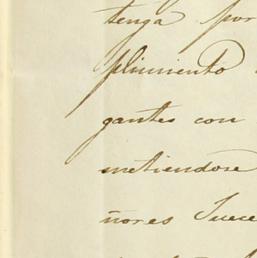 tenga por
plimiento
gantes con
metiendose
ñores Suce